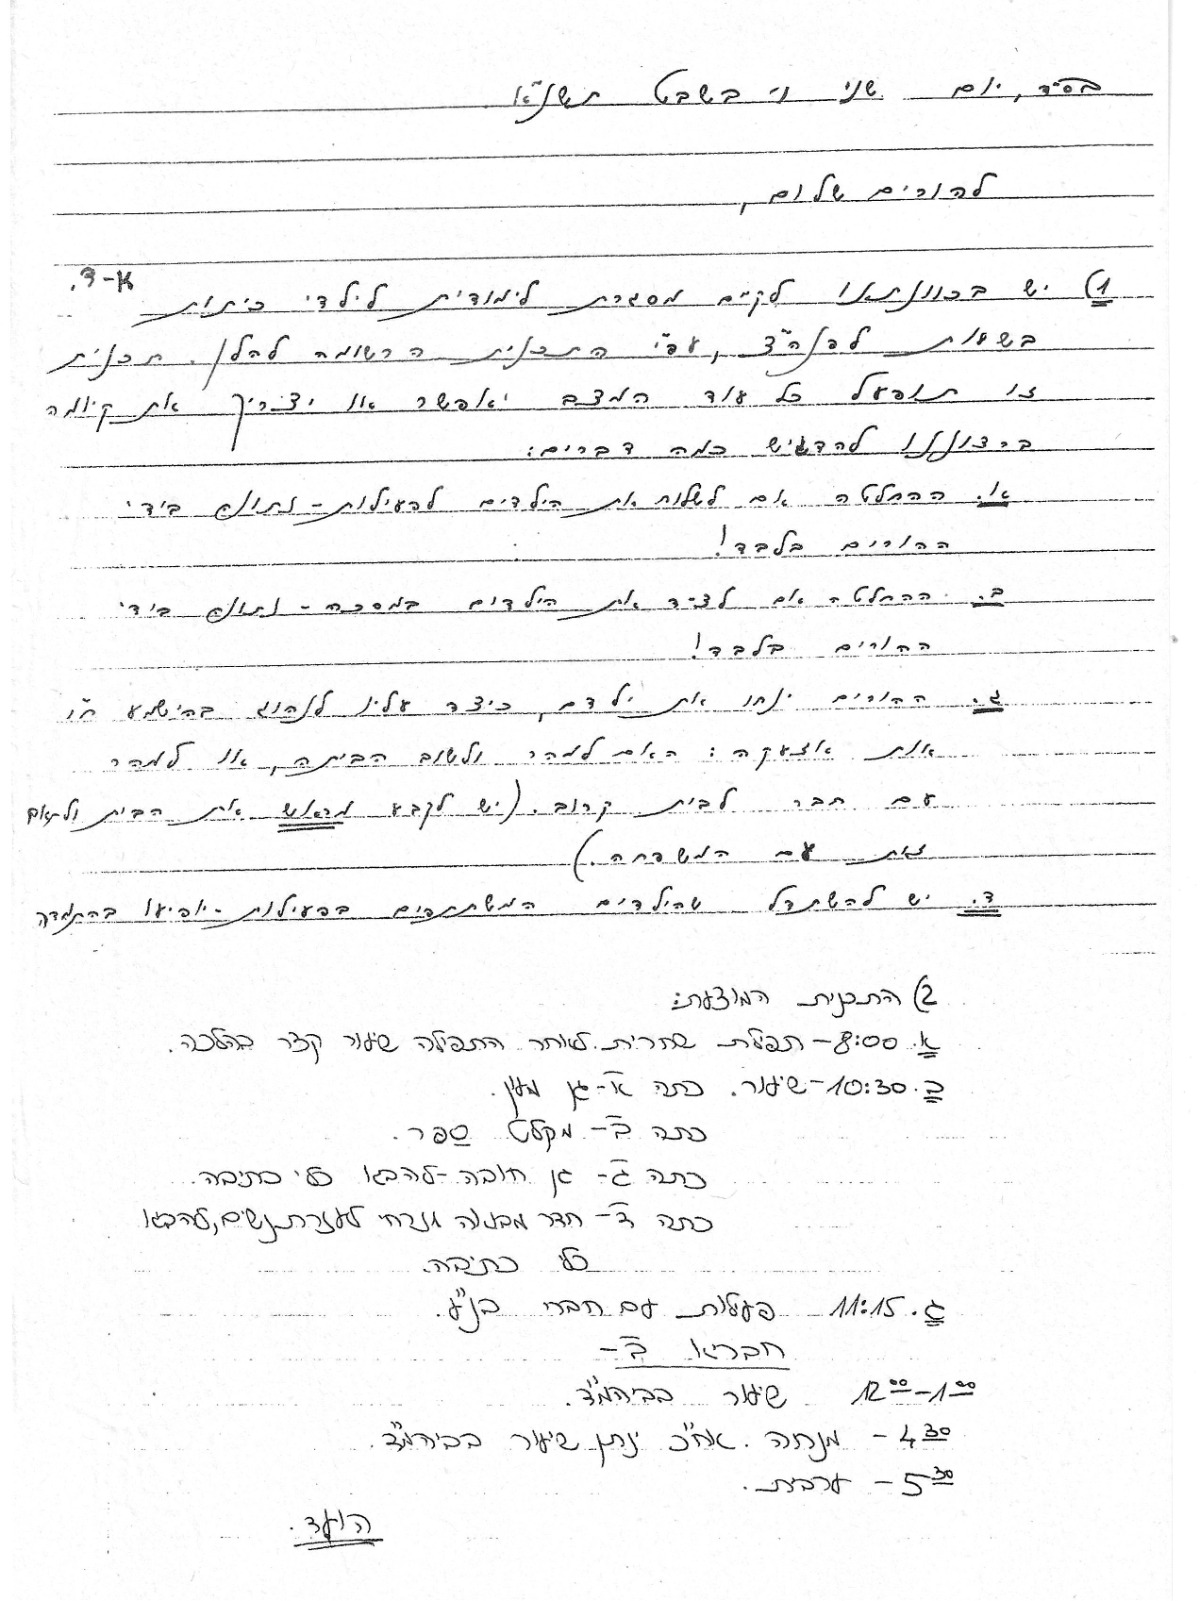 בס"ד, יום שני ו' בשבט תשנ"א
להורים שלום,
1) יש בכוונתנו לקיים מסגרת לימודית לילדי כיתות א-ד.
בשעות לפנה"צ, עפ"י התכנית הרשומה להלן. תכנית
זו תופעל כל עוד המצב יאפשר או יצריך את קיומה
ברצוננו להדגיש כמה דברים:
א. ההחלטה אם לשלוח את הילדים לפעילות - נתונה בידי
ההורים בלבד!
ב. ההחלטה אם לצייד את הילדים במסכה - נתונה בידי
ההורים בלבד!
ג. ההורים ינחו את ילדם, כיצד עליו לנהוג בהישמע ח"ו
אות אזעקה: האם למהר ולשוב הביתה, או למהר
עם חבר לבית קרוב. (יש לקבע מראש את הבית ולתאם
זאת עם המשפחה.)
ד. יש להשתדל שהילדים המשתתפים בפעילות - יופיעו בהתמדה
2) התכנית המוצעת:
א. 8:00 - תפילת שחרית. לאחר התפילה שיעור קצר בהלכה.
ב. 10:30 - שיעור. כתה א - גן מעין.
כתה ב - מקלט ספר.
כתה ג - גן חובה - להביא כלי כתיבה.
כתה ד - חדר מבואה מזרחי לעזרת נשים, להביא
כלי כתיבה.
ג. 11:15 פעלות עם חברי בנ"ע.
חבריא ב -
12:00 - 1:00 שיעור בביהמ"ד.
4:30 - מנחה. אח"כ ינתן שיעור בביהמ"ד.
5:30 - ערבית.
הועד.